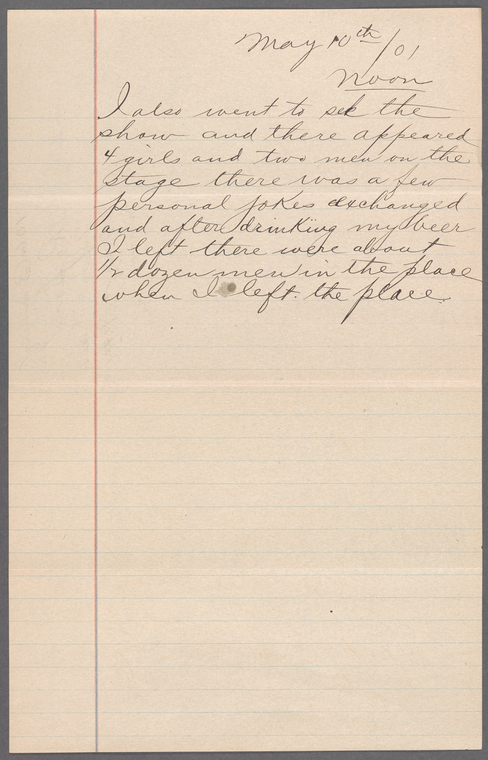 May 10th/01
Noon
I also went to see the
show and there appeared
4 girls and two men on the
stage there was a few
personal jokes exchanged
and after drinking my beer
I left there were about
1/2 dozen men in the place
when I left the place.